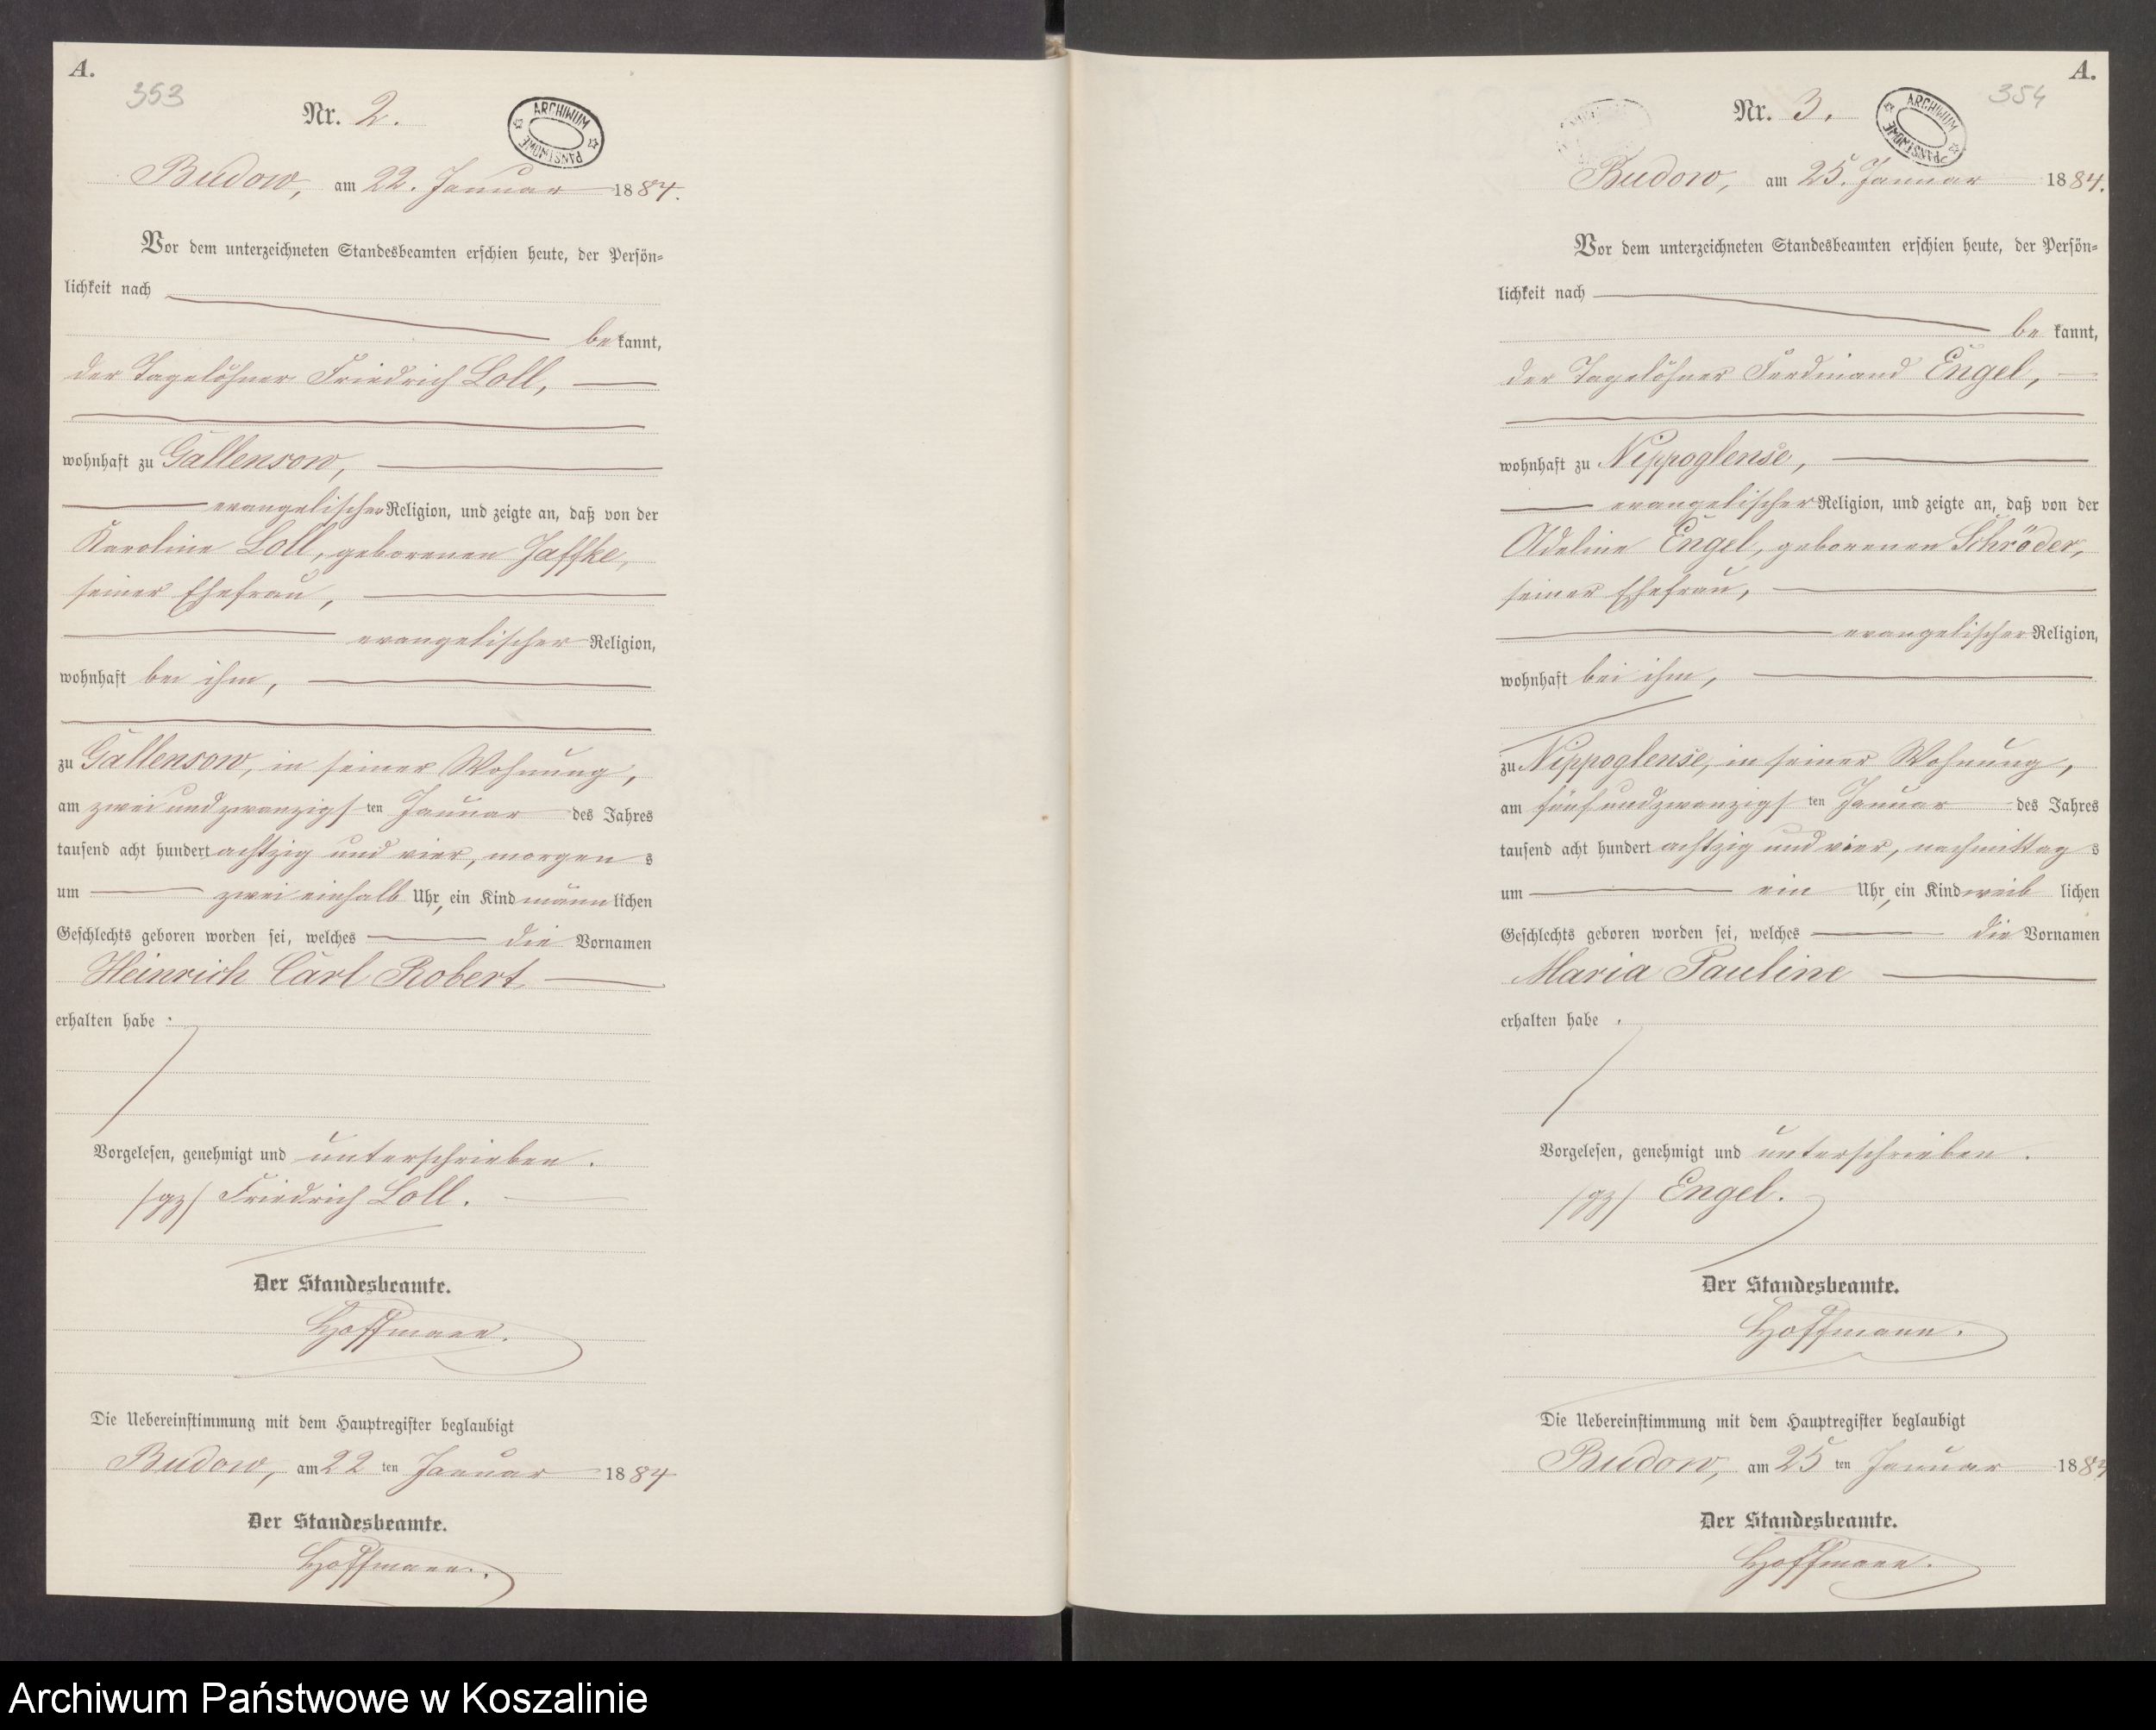 A.
353
Nr. 2.
ARCHIWUM PAŃSTWOWE
Budow, am 22. Januar 1884.
Vor dem unterzeichneten Standesbeamten erschien heute, der Persön-
lichkeit nach
be kannt,
der Tagelöhner Friedrich Loll,
wohnhaft zu Gallensow,
evangelischer Religion, und zeigte an, daß von der
Karoline Loll, geborenen Jaffke,
seiner Ehefrau,
evangelischer Religion,
wohnhaft bei ihm,
zu Gallensow, in seiner Wohnung,
am zwei und zwanzigs ten Januar des Jahres
tausend acht hundert achtzig und vier, morgen s
um zwei einhalb Uhr, ein Kind männ lichen
Geschlechts geboren worden sei, welches die Vornamen
Heinrich Carl Robert
erhalten habe .
Vorgelesen, genehmigt und unterschrieben.
/gz/ Friedrich Loll.
Der Standesbeamte.
Hoffmann.
Die Uebereinstimmung mit dem Hauptregister beglaubigt
Budow, am 22 ten Januar 1884
Der Standesbeamte.
Hoffmann.
A.
354
Nr. 3.
ARCHIWUM PAŃSTWOWE
Budow, am 25. Januar 1884.
Vor dem unterzeichneten Standesbeamten erschien heute, der Persön-
lichkeit nach
be kannt,
der Tagelöhner Ferdinand Engel,
wohnhaft zu Nippoglense,
evangelischer Religion, und zeigte an, daß von der
Adeline Engel, geborenen Schröder,
seiner Ehefrau,
evangelischer Religion,
wohnhaft bei ihm,
zu Nippoglense, in seiner Wohnung,
am fünf undzwanzigs ten Januar des Jahres
tausend acht hundert achtzig und vier, nachmittag s
um ein Uhr, ein Kind weib lichen
Geschlechts geboren worden sei, welches die Vornamen
Maria Pauline
erhalten habe .
Vorgelesen, genehmigt und unterschrieben.
/gz/ Engel.
Der Standesbeamte.
Hoffmann.
Die Uebereinstimmung mit dem Hauptregister beglaubigt
Budow, am 25 ten Januar 1884
Der Standesbeamte.
Hoffmann.
Archiwum Państwowe w Koszalinie